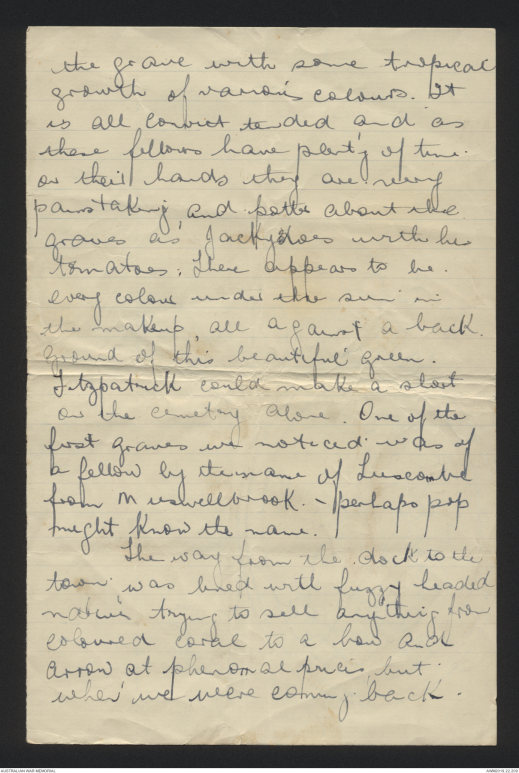 the grave with some tropical
growth of various colours. It
is all convict tended and as
these fellows have plenty of time
on their hands they are very
painstaking, and potter about the
graves as Jacky does with his
tomatoes. There appears to be
every colour under the sun in
the makeup, all against a back
ground of this beautiful green.
Fitzpatrick could make a short
on the cemetry alone. One of the
first graves we noticed was of
a fellow by the name of Luscombe
from Muswellbrook. - perhaps pop
might know the name.
The way from the dock to the
town was lined with fuzzy headed
natives trying to sell anything from
coloured coral to a bow and
arrow at phenomal prices, but
when we were coming back
AUSTRALIAN WAR MEMORIAL